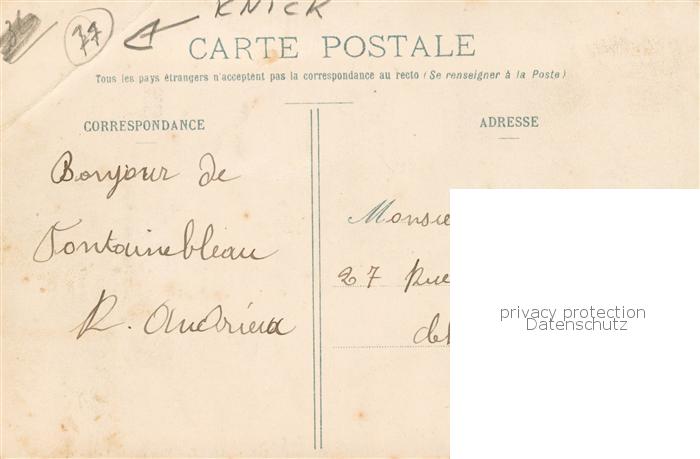 36
77
KNICK
CARTE POSTALE
Tous les pays étrangers n'acceptent pas la correspondance au recto (Se renseigner à la Poste)
CORRESPONDANCE
ADRESSE
Bonjour de
Fontainebleau
R. Andrieux
Monsie
27 Rue
privacy protection
Datenschutz